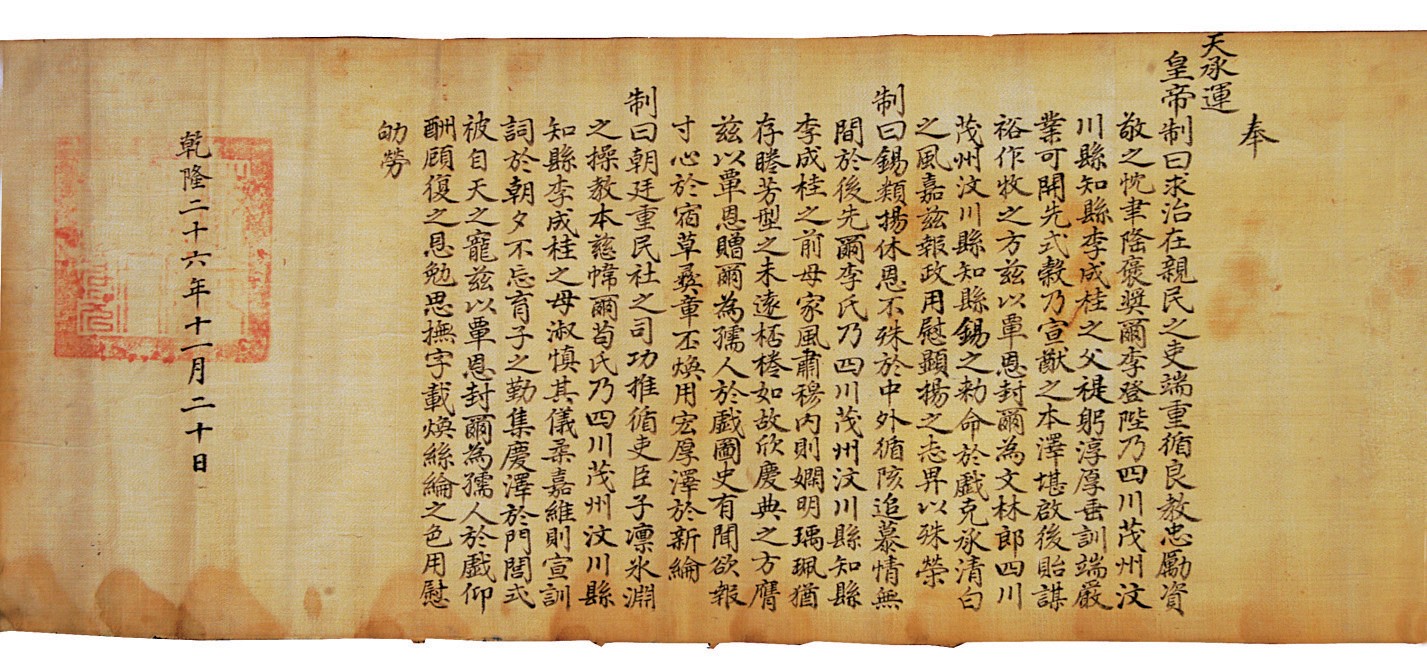 奉
天承運
皇帝制曰求治在親民之吏端重循良教忠勵資
敬之忱聿隆褒獎爾李登陛乃四川茂州汶
川縣知縣李成桂之父褆躬淳厚垂訓端嚴
業可開先式穀乃宣猷之本澤堪啟後貽謀
裕作牧之方茲以覃恩封爾為文林郎四川
茂州汶川縣知縣錫之勅命於戲克承清白
之風嘉茲報政用慰顯揚之志畀以殊榮
制曰錫類揚休恩不殊於中外循陔追慕情無
間於後先爾李氏乃四川茂州汶川縣知縣
李成桂之前母家風肅穆內則嫻明瑀珮猶
存睠芳型之未遠桮棬如故欣慶典之方膺
茲以覃恩贈爾為孺人於戲圖史有聞欲報
寸心於宿草彝章丕煥用宏厚澤於新綸
制曰朝廷重民社之司功推循吏臣子凜氷淵
之操教本慈幃爾苟氏乃四川茂州汶川縣
知縣李成桂之母淑慎其儀柔嘉維則宣訓
詞於朝夕不忘育子之勤集慶澤於門閭式
被自天之寵茲以覃恩封爾為孺人於戲仰
酬顧復之恩勉思撫字載煥絲綸之色用慰
劬勞
乾隆二十六年十一月二十日